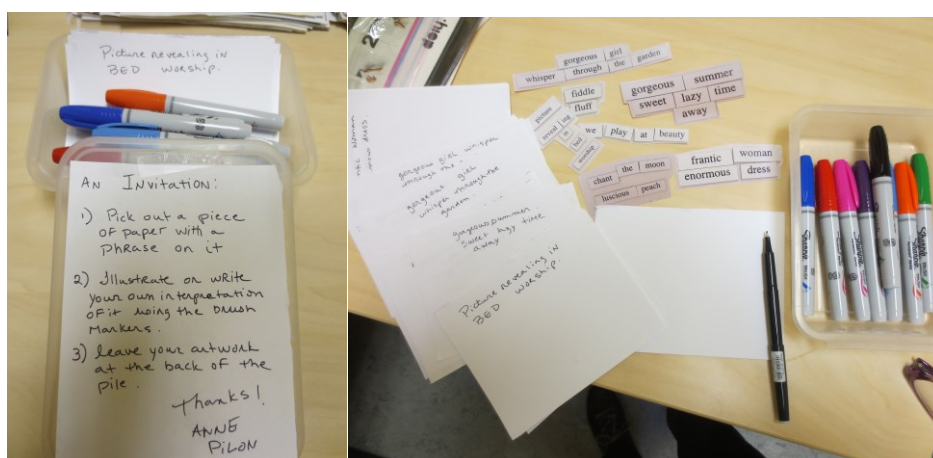 Picture revealing in
BED worship.
An Invitation:
1) Pick out a piece
of paper with a
phrase on it
2) Illustrate or write
your own interpretation
of it using the brush
markers.
3) leave your artwork
at the back of the
pile.
Thanks!
ANNE
PILON
gorgeous girl
whisper through the garden
fiddle
fluff
picture
reveal ing
in
bed
worship
we play at beauty
gorgeous summer
sweet lazy time
away
chant the moon
luscious peach
frantic woman
enormous dress
gorgeous girl whisper
through the
gorgeous girl
whisper through the
garden
gorgeous summer
Sweet lazy time
away
Picture revealing in
BED worship.
Sharpie